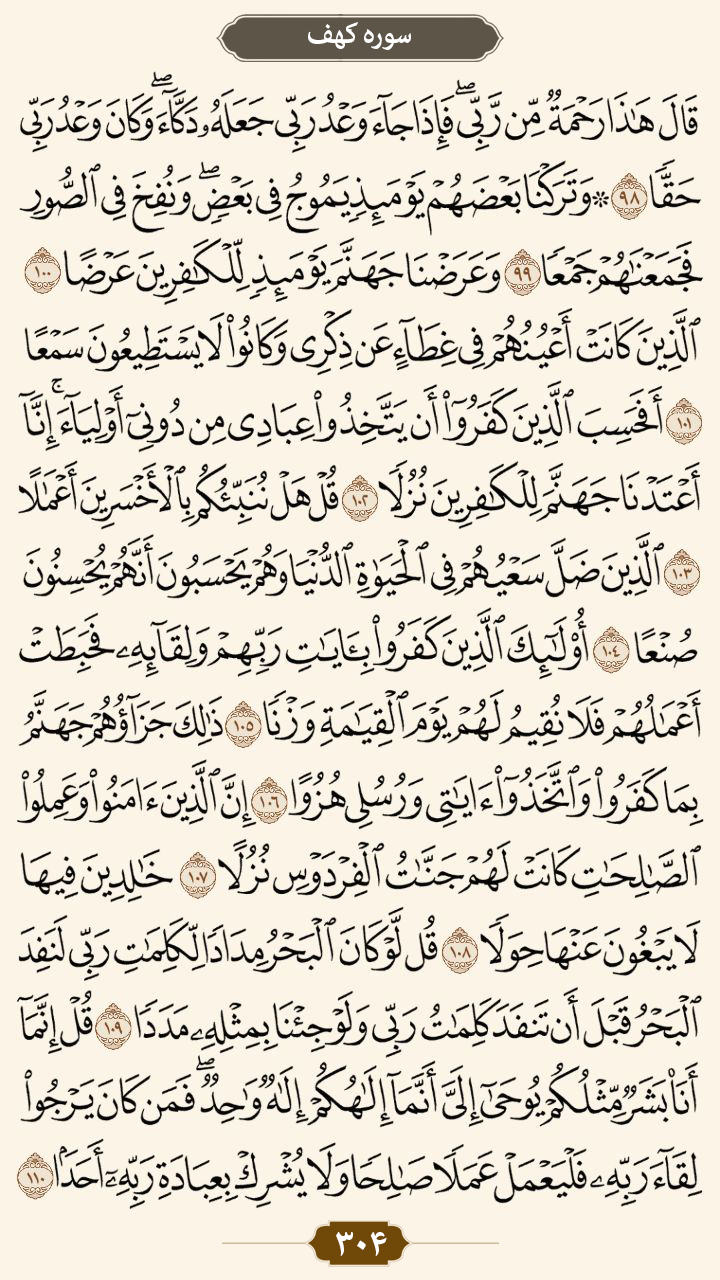 سوره کهف
قَالَ هَٰذَا رَحْمَةٌ مِّن رَّبِّي ۖ فَإِذَا جَآءَ وَعْدُ رَبِّي جَعَلَهُۥ دَكَّآءَ ۖ وَكَانَ وَعْدُ رَبِّي
حَقًّا ٩٨ ۞ وَتَرَكْنَا بَعْضَهُمْ يَوْمَئِذٍ يَمُوجُ فِي بَعْضٍ ۖ وَنُفِخَ فِي ٱلصُّورِ
فَجَمَعْنَٰهُمْ جَمْعًا ٩٩ وَعَرَضْنَا جَهَنَّمَ يَوْمَئِذٍ لِّلْكَٰفِرِينَ عَرْضًا ١٠٠
ٱلَّذِينَ كَانَتْ أَعْيُنُهُمْ فِي غِطَآءٍ عَن ذِكْرِي وَكَانُوا۟ لَا يَسْتَطِيعُونَ سَمْعًا
١٠١ أَفَحَسِبَ ٱلَّذِينَ كَفَرُوٓا۟ أَن يَتَّخِذُوا۟ عِبَادِي مِن دُونِيٓ أَوْلِيَآءَ ۚ إِنَّآ
أَعْتَدْنَا جَهَنَّمَ لِلْكَٰفِرِينَ نُزُلًا ١٠٢ قُلْ هَلْ نُنَبِّئُكُم بِٱلْأَخْسَرِينَ أَعْمَٰلًا
١٠٣ ٱلَّذِينَ ضَلَّ سَعْيُهُمْ فِي ٱلْحَيَوٰةِ ٱلدُّنْيَا وَهُمْ يَحْسَبُونَ أَنَّهُمْ يُحْسِنُونَ
صُنْعًا ١٠٤ أُو۟لَٰٓئِكَ ٱلَّذِينَ كَفَرُوا۟ بِـَٔايَٰتِ رَبِّهِمْ وَلِقَآئِهِۦ فَحَبِطَتْ
أَعْمَٰلُهُمْ فَلَا نُقِيمُ لَهُمْ يَوْمَ ٱلْقِيَٰمَةِ وَزْنًا ١٠٥ ذَٰلِكَ جَزَآؤُهُمْ جَهَنَّمُ
بِمَا كَفَرُوا۟ وَٱتَّخَذُوٓا۟ ءَايَٰتِي وَرُسُلِي هُزُوًا ١٠٦ إِنَّ ٱلَّذِينَ ءَامَنُوا۟ وَعَمِلُوا۟
ٱلصَّٰلِحَٰتِ كَانَتْ لَهُمْ جَنَّٰتُ ٱلْفِرْدَوْسِ نُزُلًا ١٠٧ خَٰلِدِينَ فِيهَا
لَا يَبْغُونَ عَنْهَا حِوَلًا ١٠٨ قُل لَّوْ كَانَ ٱلْبَحْرُ مِدَادًا لِّكَلِمَٰتِ رَبِّي لَنَفِدَ
ٱلْبَحْرُ قَبْلَ أَن تَنفَدَ كَلِمَٰتُ رَبِّي وَلَوْ جِئْنَا بِمِثْلِهِۦ مَدَدًا ١٠٩ قُلْ إِنَّمَآ
أَنَا۠ بَشَرٌ مِّثْلُكُمْ يُوحَىٰٓ إِلَيَّ أَنَّمَآ إِلَٰهُكُمْ إِلَٰهٌ وَٰحِدٌ ۖ فَمَن كَانَ يَرْجُوا۟
لِقَآءَ رَبِّهِۦ فَلْيَعْمَلْ عَمَلًا صَٰلِحًا وَلَا يُشْرِكْ بِعِبَادَةِ رَبِّهِۦٓ أَحَدًۢا ١١٠
۳۰۴